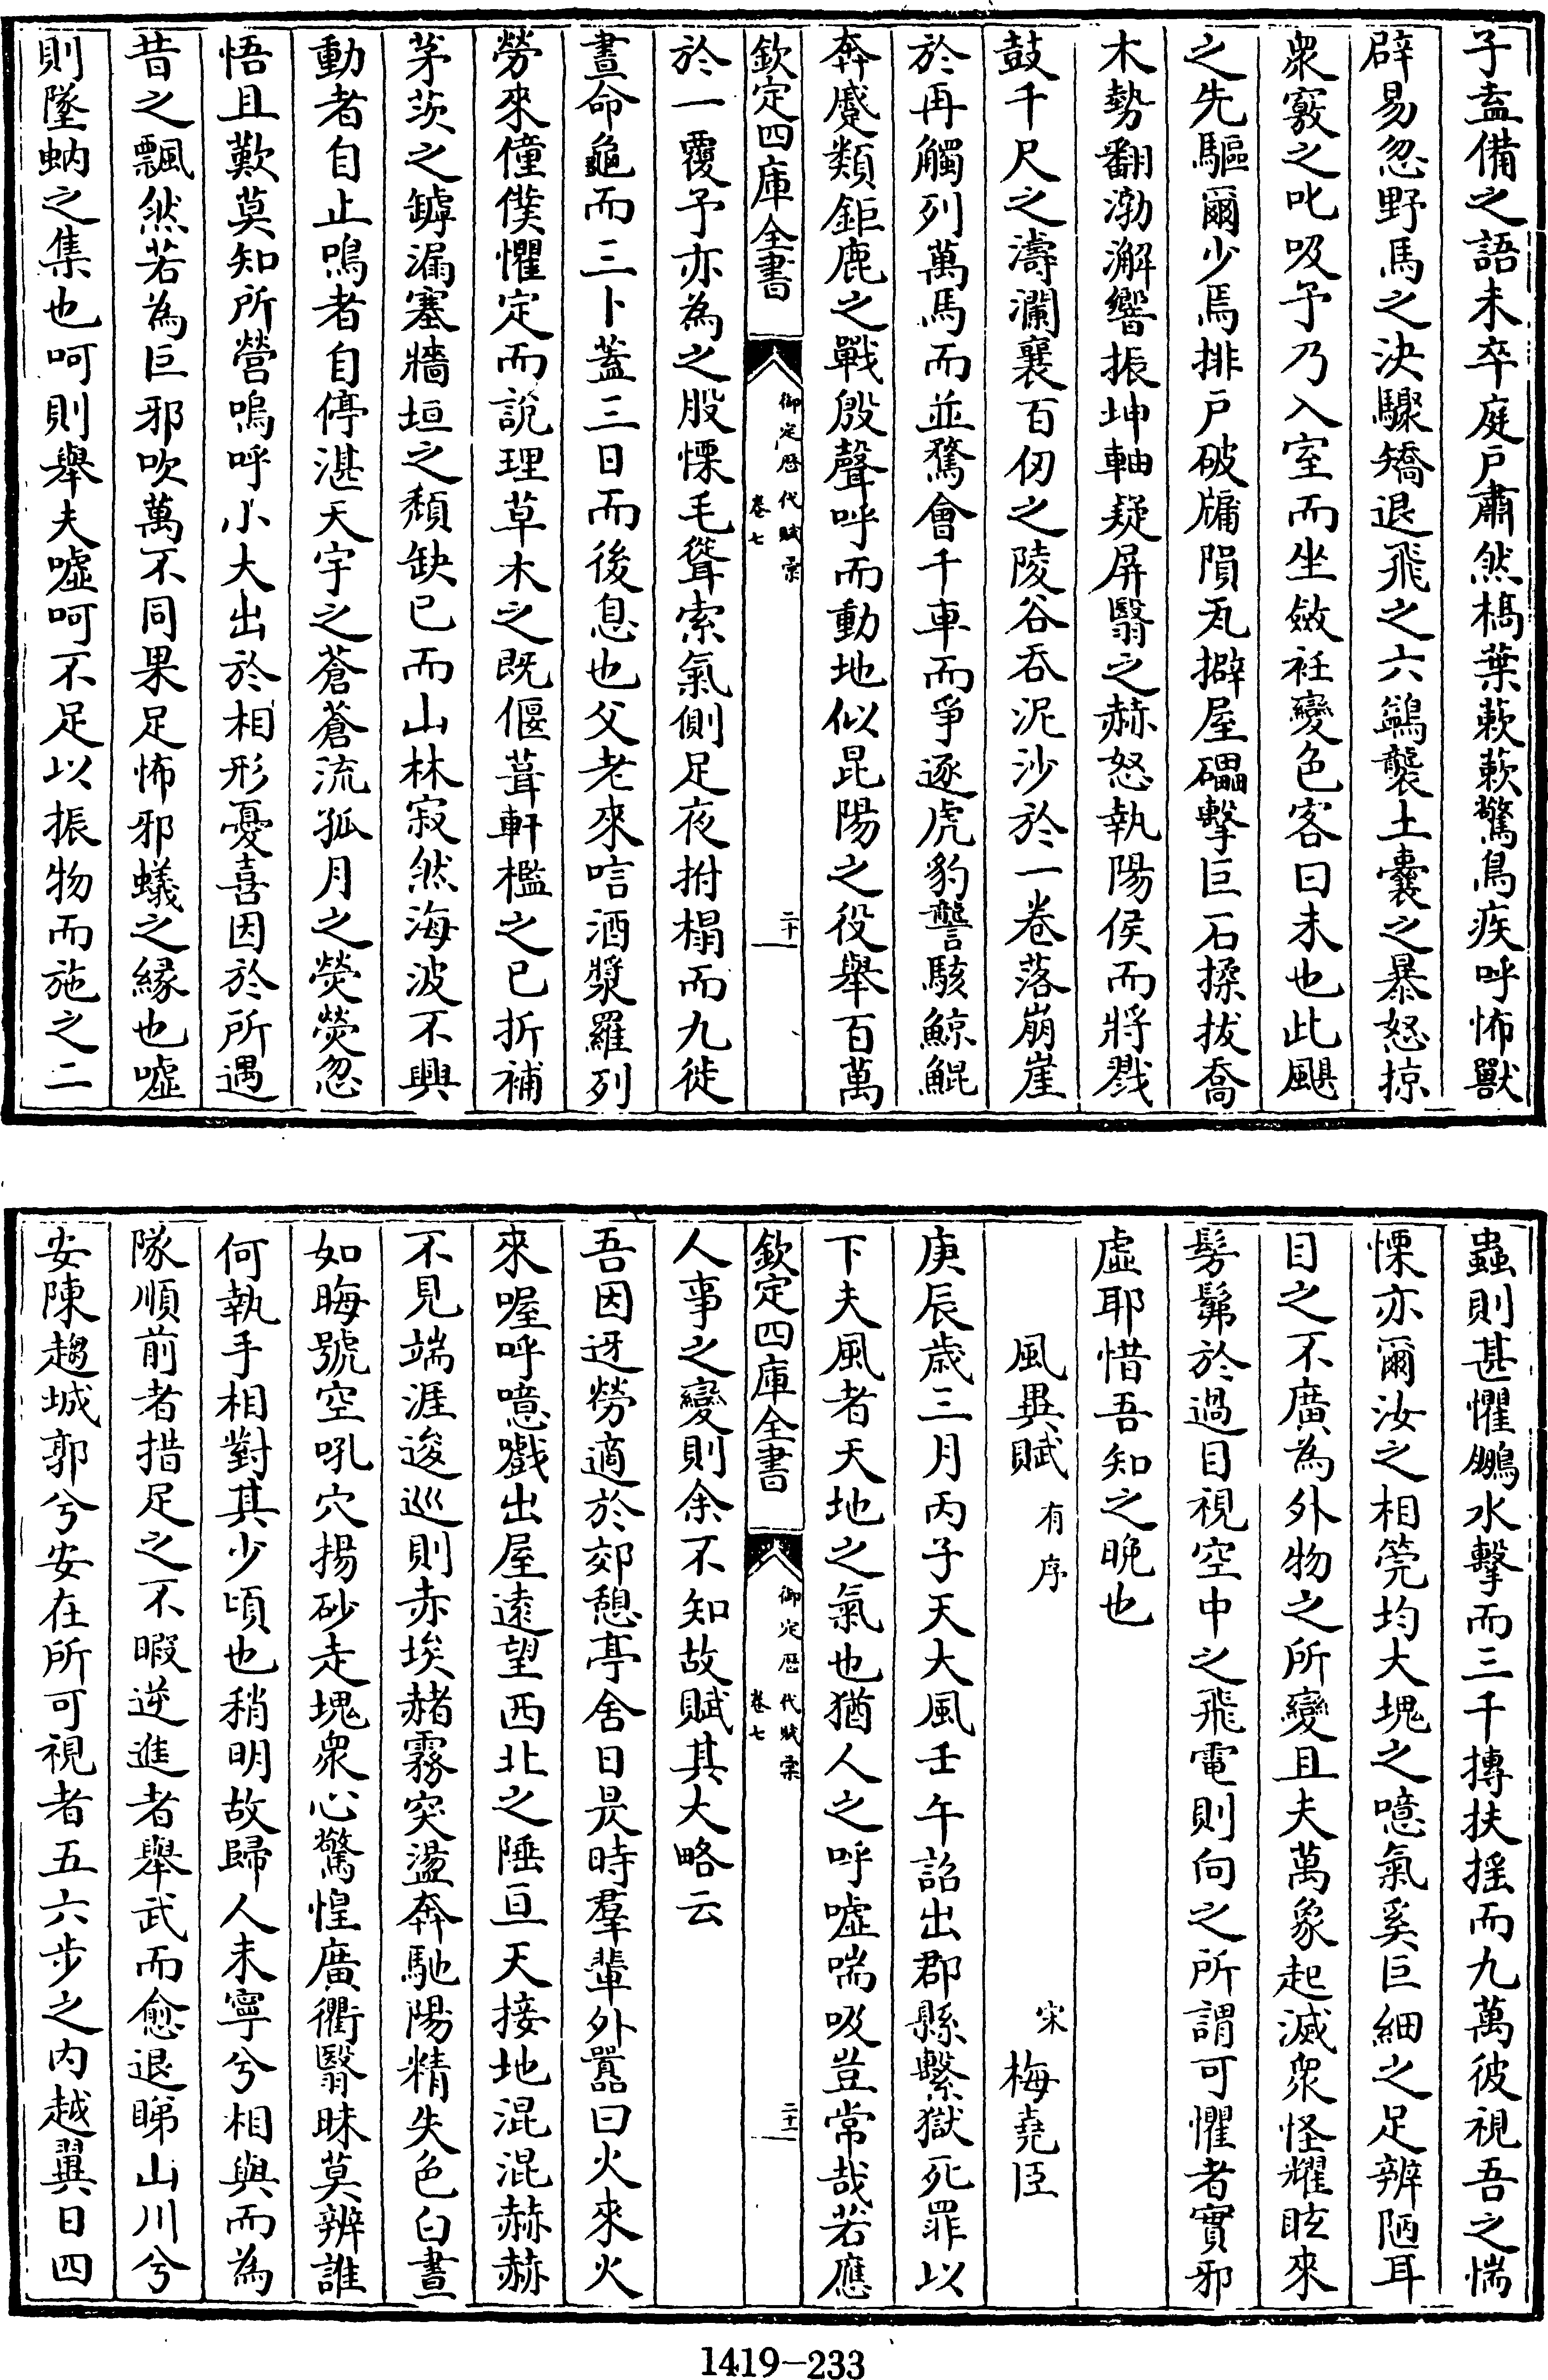 子盍備之語未卒庭户肅然槁葉蔌蔌驚鳥疾呼怖獸
辟易忽野馬之決驟矯退飛之六鷁襲土囊之暴怒掠
衆竅之叱吸予乃入室而坐斂衽變色客曰未也此颶
之先驅爾少焉排户破牖隕瓦擗屋礧擊巨石揉拔喬
木勢翻渤澥響振坤軸疑屏翳之赫怒執陽侯而將戮
鼓千尺之濤瀾襄百仞之陵谷吞泥沙於一卷落崩崖
於再觸列萬馬而並騖會千車而爭逐虎豹讋駭鯨鯤
奔蹙類鉅鹿之戰殷聲呼而動地似昆陽之役舉百萬
欽定四庫全書
御定歷代賦彙
卷七
二十
於一覆予亦為之股慄毛聳索氣側足夜拊榻而九徙
晝命龜而三卜蓋三日而後息也父老來唁酒漿羅列
勞來僮僕懼定而說理草木之既偃葺軒檻之已折補
茅茨之罅漏塞牆垣之頽缺已而山林寂然海波不興
動者自止鳴者自停湛天宇之蒼蒼流孤月之熒熒忽
悟且歎莫知所營嗚呼小大出於相形憂喜因於所遇
昔之飄然若為巨邪吹萬不同果足怖邪蟻之縁也噓
則墜蚋之集也呵則舉夫噓呵不足以振物而施之二
蟲則甚懼鵬水擊而三千摶扶摇而九萬彼視吾之惴
慄亦爾汝之相莞均大塊之噫氣奚巨細之足辨陋耳
目之不廣為外物之所變且夫萬象起滅衆怪耀眩來
髣髴於過目視空中之飛電則向之所謂可懼者實邪
虛耶惜吾知之晚也
風異賦 有序 宋 梅堯臣
庚辰歳三月丙子天大風壬午詔出郡縣繫獄死罪以
下夫風者天地之氣也猶人之呼噓喘吸豈常哉若應
欽定四庫全書
御定歷代賦彙
卷七
二十一
人事之變則余不知故賦其大略云
吾因迓勞適於郊憩亭舍日昃時羣輩外囂曰火來火
來喔呼噫戲出屋遠望西北之陲亘天接地混混赫赫
不見端涯逡巡則赤埃赭霧突盪奔馳陽精失色白晝
如晦號空吼穴揚砂走塊衆心驚惶廣衢翳昧莫辨誰
何執手相對其少頃也稍明故歸人未寧兮相與而為
隊順前者措足之不暇逆進者舉武而愈退睇山川兮
安陳趨城郭兮安在所可視者五六步之内越翼日四
1419-233